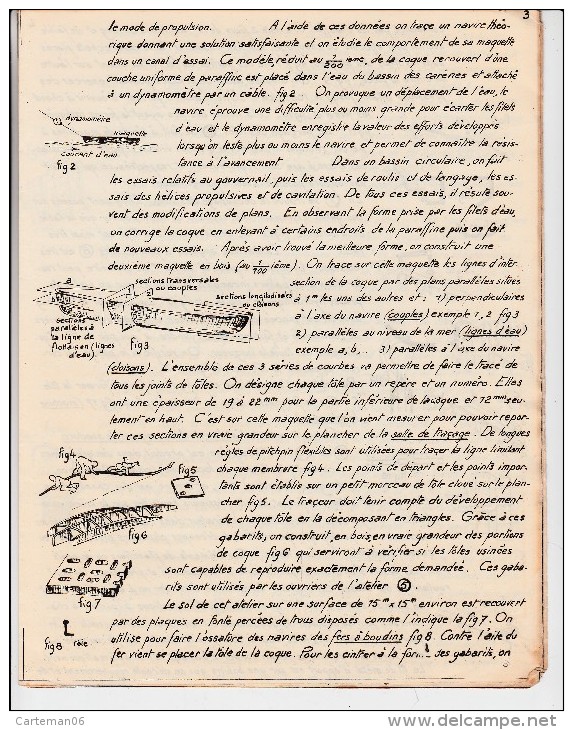 3
le mode de propulsion. A l'aide de ces données on trace un navire théo-
rique donnant une solution satisfaisante et on étudie le comportement de sa maquette
dans un canal d'essai. Ce modèle, réduit au 1/200 ième, de la coque recouvert d'une
couche uniforme de paraffine est placé dans l'eau du bassin des carènes et attaché
à un dynamomètre par un cable. fig 2. On provoque un déplacement de l'eau, le
navire éprouve une difficulté plus ou moins grande pour écarter les filets
d'eau et le dynamomètre enregistre la valeur des efforts développés
lorsqu'on leste plus ou moins le navire et permet de connaître la résis-
tance à l'avancement Dans un bassin circulaire, on fait
dynamomètre
maquette
courant d'eau
fig 2
les essais relatifs au gouvernail, puis les essais de roulis et de tangage, les es-
sais des hélices propulsives et de cavitation. De tous ces essais, il résulte sou-
vent des modifications de plans. En observant la forme prise par les filets d'eau,
on corrige la coque en enlevant à certains endroits de la paraffine puis on fait
de nouveaux essais. Après avoir trouvé la meilleure forme, on construit une
deuxième maquette en bois (au 1/100 ième). On trace sur cette maquette les lignes d'inter-
section de la coque par des plans parallèles situés
à 1m les uns des autres et : 1) perpendiculaires
à l'axe du navire (couples) exemple 1, 2 fig 3
2) parallèles au niveau de la mer (lignes d'eau)
exemple a, b, .. 3) parallèles à l'axe du navire
a
sections transversales
ou couples
sections longitudinales
ou cloisons
sections
parallèles à
la ligne de
flottaison (lignes
d'eau).
fig 3
(cloisons). L'ensemble de ces 3 séries de courbes va permettre de faire le tracé de
tous les joints de tôles. On désigne chaque tôle par un repère et un numéro. Elles
ont une épaisseur de 19 à 22 mm pour la partie inférieure de la coque et 12 mm seu-
lement en haut. C'est sur cette maquette que l'on vient mesurer pour pouvoir repor-
ter ces sections en vraie grandeur sur le plancher de la salle de traçage. De longues
règles de pitchpin flexibles sont utilisées pour tracer la ligne limitant
chaque membrure fig 4. Les points de départ et les points impor-
tants sont établis sur un petit morceau de tôle cloué sur le plan-
cher fig 5. Le traceur doit tenir compte du développement
de chaque tôle en la décomposant en triangles. Grâce à ces
gabarits, on construit, en bois en vraie grandeur des portions
de coque fig 6 qui serviront à vérifier si les tôles usinées
sont capables de reproduire exactement la forme demandée. Ces gaba-
rits sont utilisés par les ouvriers de l'atelier 5
fig 4
fig 5
fig 6
fig 7
Le sol de cet atelier sur une surface de 15 m x 15 m environ est recouvert
par des plaques en fonte percées de trous disposés comme l'indique la fig 7. On
utilise pour faire l'ossature des navires des fers à boudins fig 8. Contre l'aile du
fer vient se placer la tôle de la coque. Pour les cintrer à la for... des gabarits, on
fig 8
tôle
Carteman06
www.delcampe.net